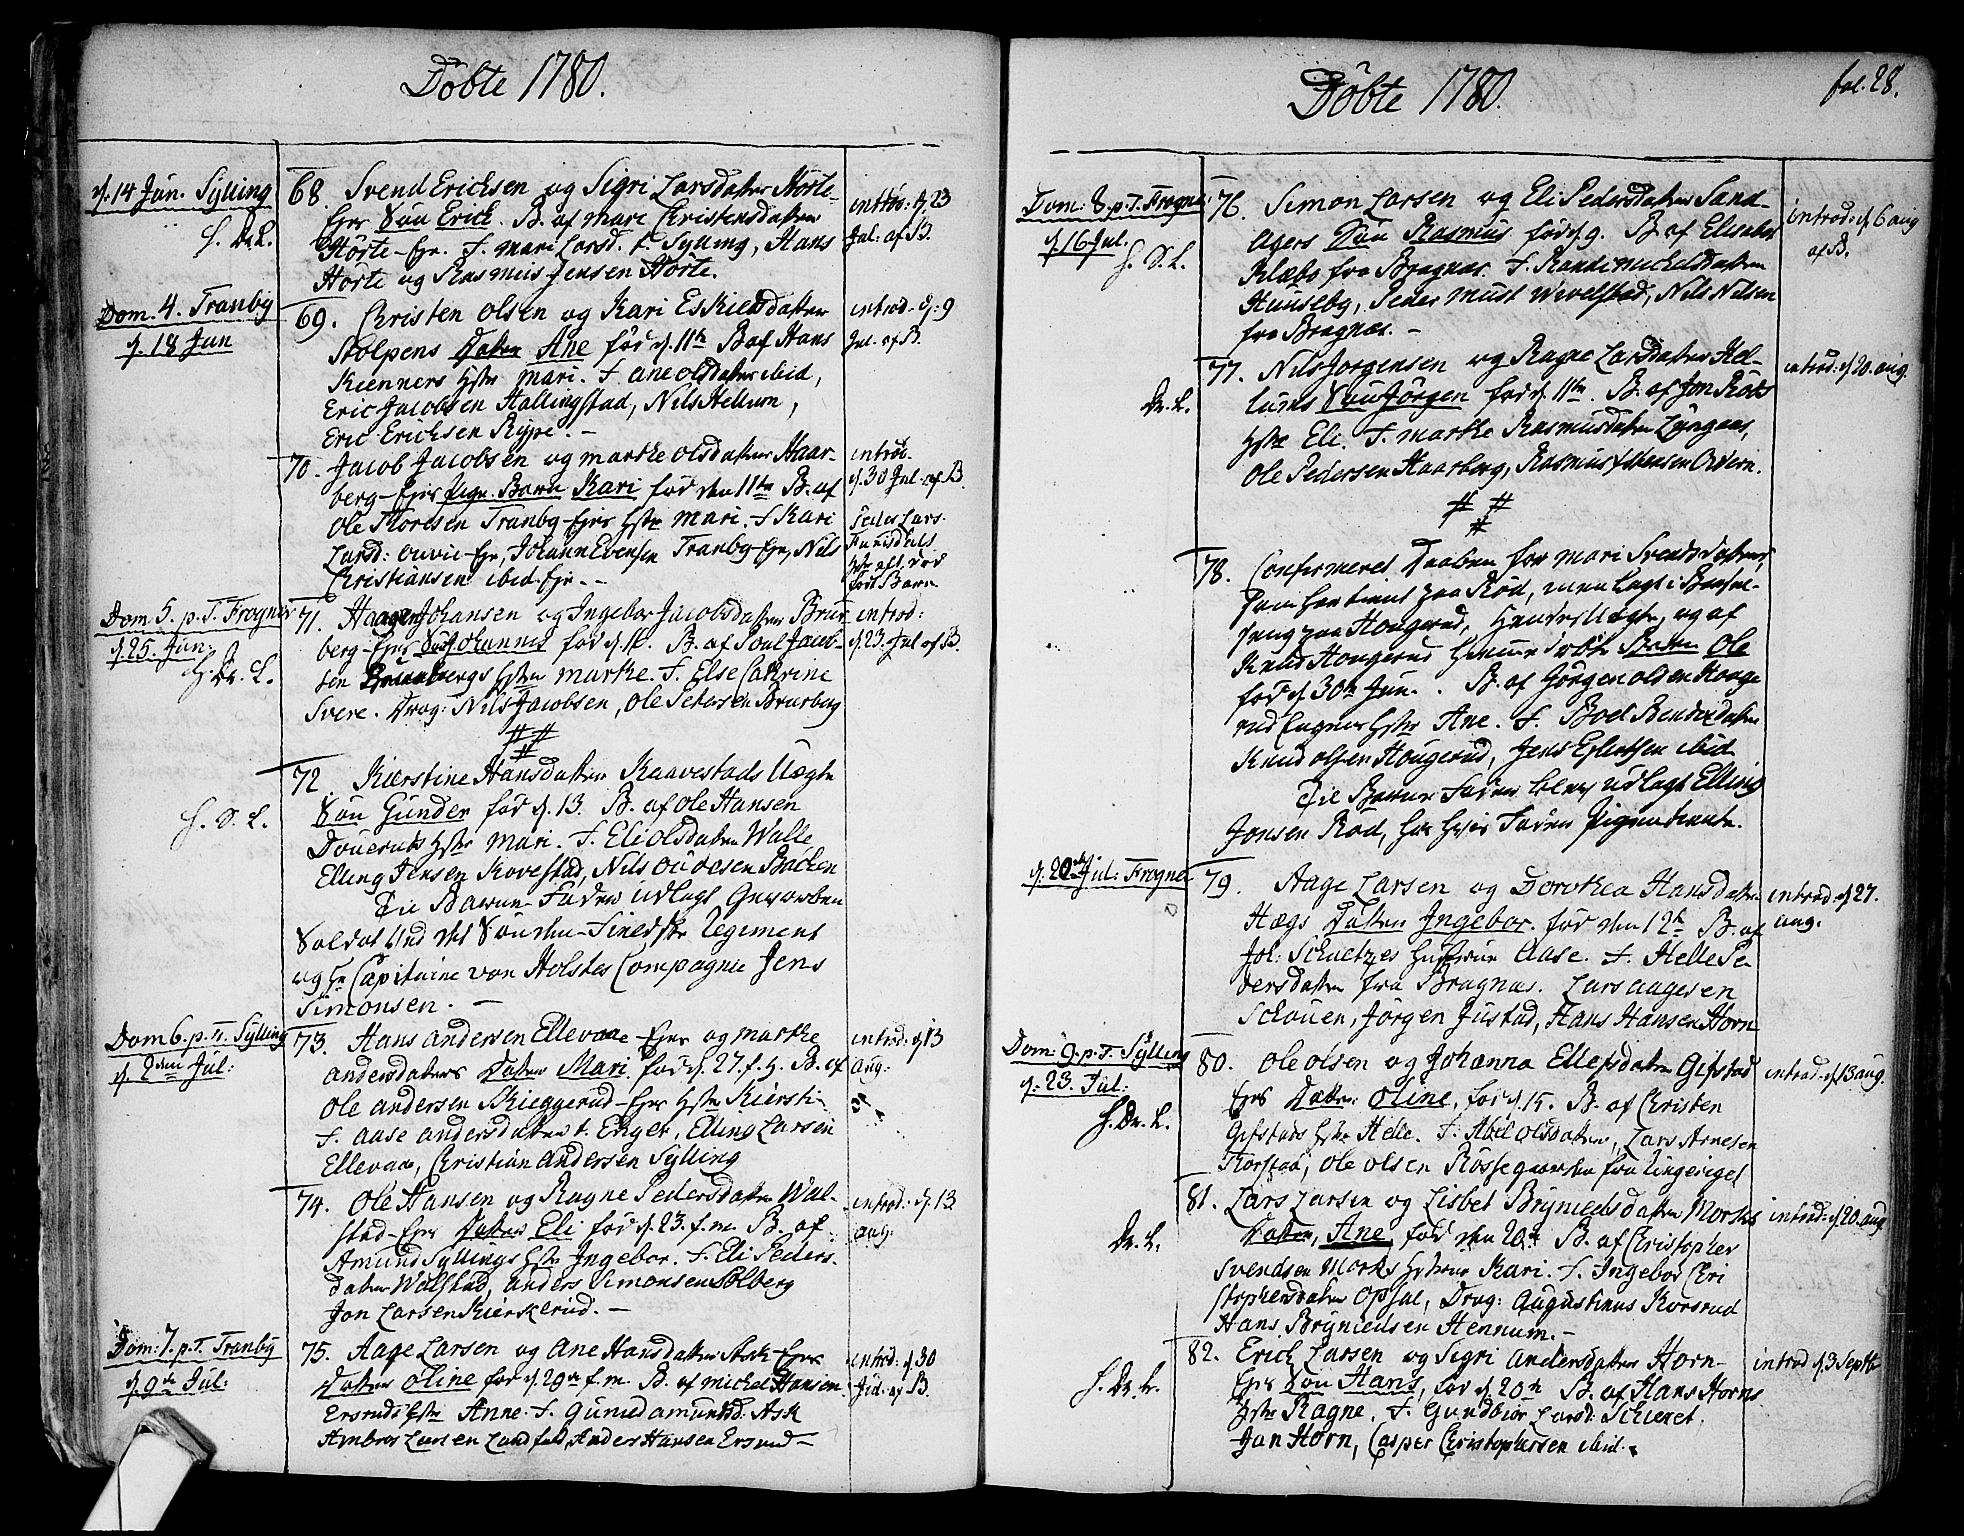 Döbte 1780.
d. 14 Jun. Sylling
H. Dr. L.
68. Svend Ericksen og Sigri Larsdatter Hörte-
Ejer Sön Erick. B. af Mari Christensdatter
Hörte-Ejr. F. Mari Larsd. fr Sylling, Hans
Hörte og Rasmus Jensen Hörte.
introd: d. 23
Jul: af B.
Dom. 4. Tranby
d. 18 Jun
69. Christen Olsen og Kari Eskilsdatter
Stolpens Datter Ane föd d. 11te B. af Hans
Kienners Hstr Mari. F. Ane Olsdatter ibid,
Eric Jacobsen Hallingstad, Nils Hellum,
Eric Ericksen Rype. -
introd. d. 9
Jul. af B.
70. Jacob Jacobsen og Marthe Olsdatter Haar-
berg-Ejrs Pige-Barn Kari föd den 11te B. af
Ole Thoresen Tranby-Ejes Hstr Mari. F. Kari
Larsd: Ouvie-Eje, Johan Evensen Tranby-Eje, Nils
Christiansen ibid-Eje. -
introd.
d. 30 Jul. af B.
död
Barn
Dom. 5. p. T. Frogner
d. 25. Jun.
H. Dr. L.
71. Haagen Johansen og Ingebor Jacobsdatter Brur-
berg-Ejes Sön Johannis föd d. 16. B. af Poul Jacob-
sen Bruurbergs Hstr Marthe. F. Else Cathrine
Svere. Drag: Nils Jacobsen, Ole Petersen Brurberg
introd:
d. 23. Jul af B.
# #
#
H. S. L.
72 Kierstine Hansdatter Kaavestads Uægte
Sön Gunder föd d. 13. B. af Ole Hansen
Hstr Mari. F. Eli Olsdatter Walle,
Elling Jensen Kovestad, Nils Backen
Til Barne-Fader udlagt Geworben
Soldat und det Regiment
og Hr Capitaine von Holstes Compagnie Jens
Simonsen. -
Dom 6. p. Tr. Sylling
d. 2den Jul:
73. Hans Andersen Ellevaae-Ejer og Marthe
Andersdatters Datter Mari föd d. 27. f. M. B. af
Ole Andersen Skieggerud-Ejes Hstr Kiersti-
F. Aase Andersdatter v. Enger, Elling Larsen
Ellevaa, Christian Andersen Sylling
introd: d. 13
Aug:
74. Ole Hansen og Ragne Pedersdatter Wal-
stad-Ejes Datter Eli föd d. 23. f. m. B. af
Amund Syllings Hstr Ingebor. F. Eli Peders-
datter Walstad, Anders Simonsen Solberg
Jon Larsen Kierkerud. -
introd: d. 13
Aug:
Dom: 7. p. T. Tranby
d. 9de Jul:
75. Aage Larsen og Ane Hansdatter Ask-Ejes
Datter Oline föd d. 29de f. m. B. af Michel Hansen
Ersruds Hstr Anne. F. Gunild Amundsd: Ask
Ambros Larsen Landfald, Anders Hansen Ersrud -
introd: d. 30
Jul: af B.
Döbte 1780.
fol. 28.
Dom: 8 p. T. Frogner
d. 16 Jul.
H. S. L.
76. Simon Larsen og Eli Pedersdatter Sand-
agers Sön Rasmus föd d. 9. B. af Elisabet
Klæbs fra Bragnæs. F. Randi Michelsdatter
Huuseby, Peder Must Wevelstad, Nils Nilsen
fra Bragnæs. -
introd: d. 6 aug
af B.
Dr. L.
77. Nils Jörgensen og Ragne Larsdatter Hel-
lums Sön Jörgen föd d. 11te. B. af Jon Röks
Hstr Eli. F. Marthe Rasmusdatter Lyngaas,
Ole Pedersen Haarberg, Rasmus Asbensen Overn.
introd: d. 20. aug.
# #
#
78. Confirmeret Daaben for Mari Svendsdatter,
som har tient paa Röd, men lagt i Barsel-
seng paa Hougerud, hendes Uægte, og af
Knud Hougerud hiemme döbt Datter Ole
föd d. 30te Jun. . B. af Görgen Olsen Houge
rud Engens Hstr Ane. F. Boel Bendixdatter
Knud Olsen Hougerud, Jens Eylertsen ibid.
Til Barne Fader blev udlagt Elling
Jonsen Rod, hos hvis Fader Pigen tiente.
d. 20de Jul: Frogner
79. Aage Larsen og Dorothea Hansdatter
Hægs Datter Ingebor. föd den 12te B. af
Joh: Schuetzes Hustrue Aase. F. Helle Pe
dersdatter fra Bragnæs. Lars Aagesen
Schouen, Jörgen Justad, Hans Hansen Horn
introd. d. 27.
aug.
Dom: 9. p. T. Sylling
d. 23. Jul:
H. Dr. L.
80. Ole Olsen og Johanna Ellefsdatter Gifstad
Ejes Datter: Oline, föd d. 15. B. af Christen
Gifstads Hstr Helle. F. Abel Olsdatter, Lars Arnesen
Korstad, Ole Olsen Rösse fra Ringeriget
introd: d. 13 aug.
Dr. L.
81. Lars Larsen og Lisbet Bryniedsdatter Morks
Datter, Ane, föd den 20de B. af Christopher
Svendsen Morks Hstrue Kari. F. Ingebor Chri
stophersdatter Opsal, Drag: Augustinus Korsrud
Hans Bryniedsen Hennum. -
introd: d. 20. aug
H. Dr. L.
82. Erick Larsen og Sigri Andersdatter Horn-
Ejes Sön Hans, föd d. 20de B. af Hans Horns
Hstr Ragne. F. Gundbior Larsd: Schieret.
Jon Horn, Casper Christophersen ibid. -
introd d. 3 Septb